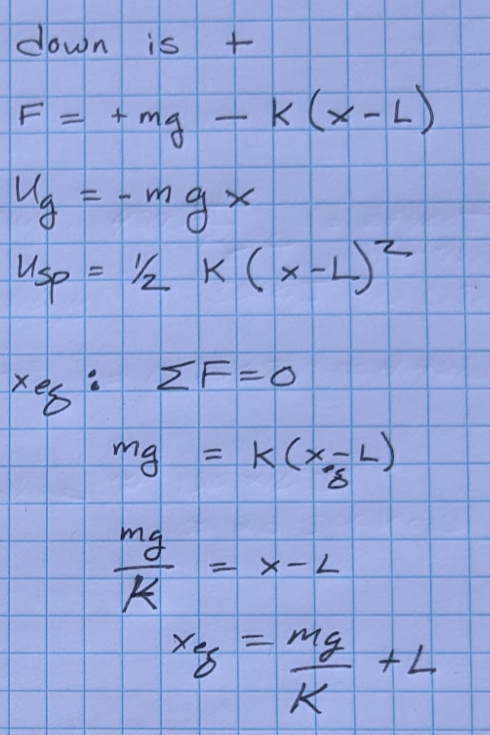 down is +
F = + mg - K (x - L)
Ug = - m g x
Usp = ½ K ( x - L)²
xeq : ΣF = 0
mg = K (xeq - L)
mg/K = x - L
xeq = mg/K + L